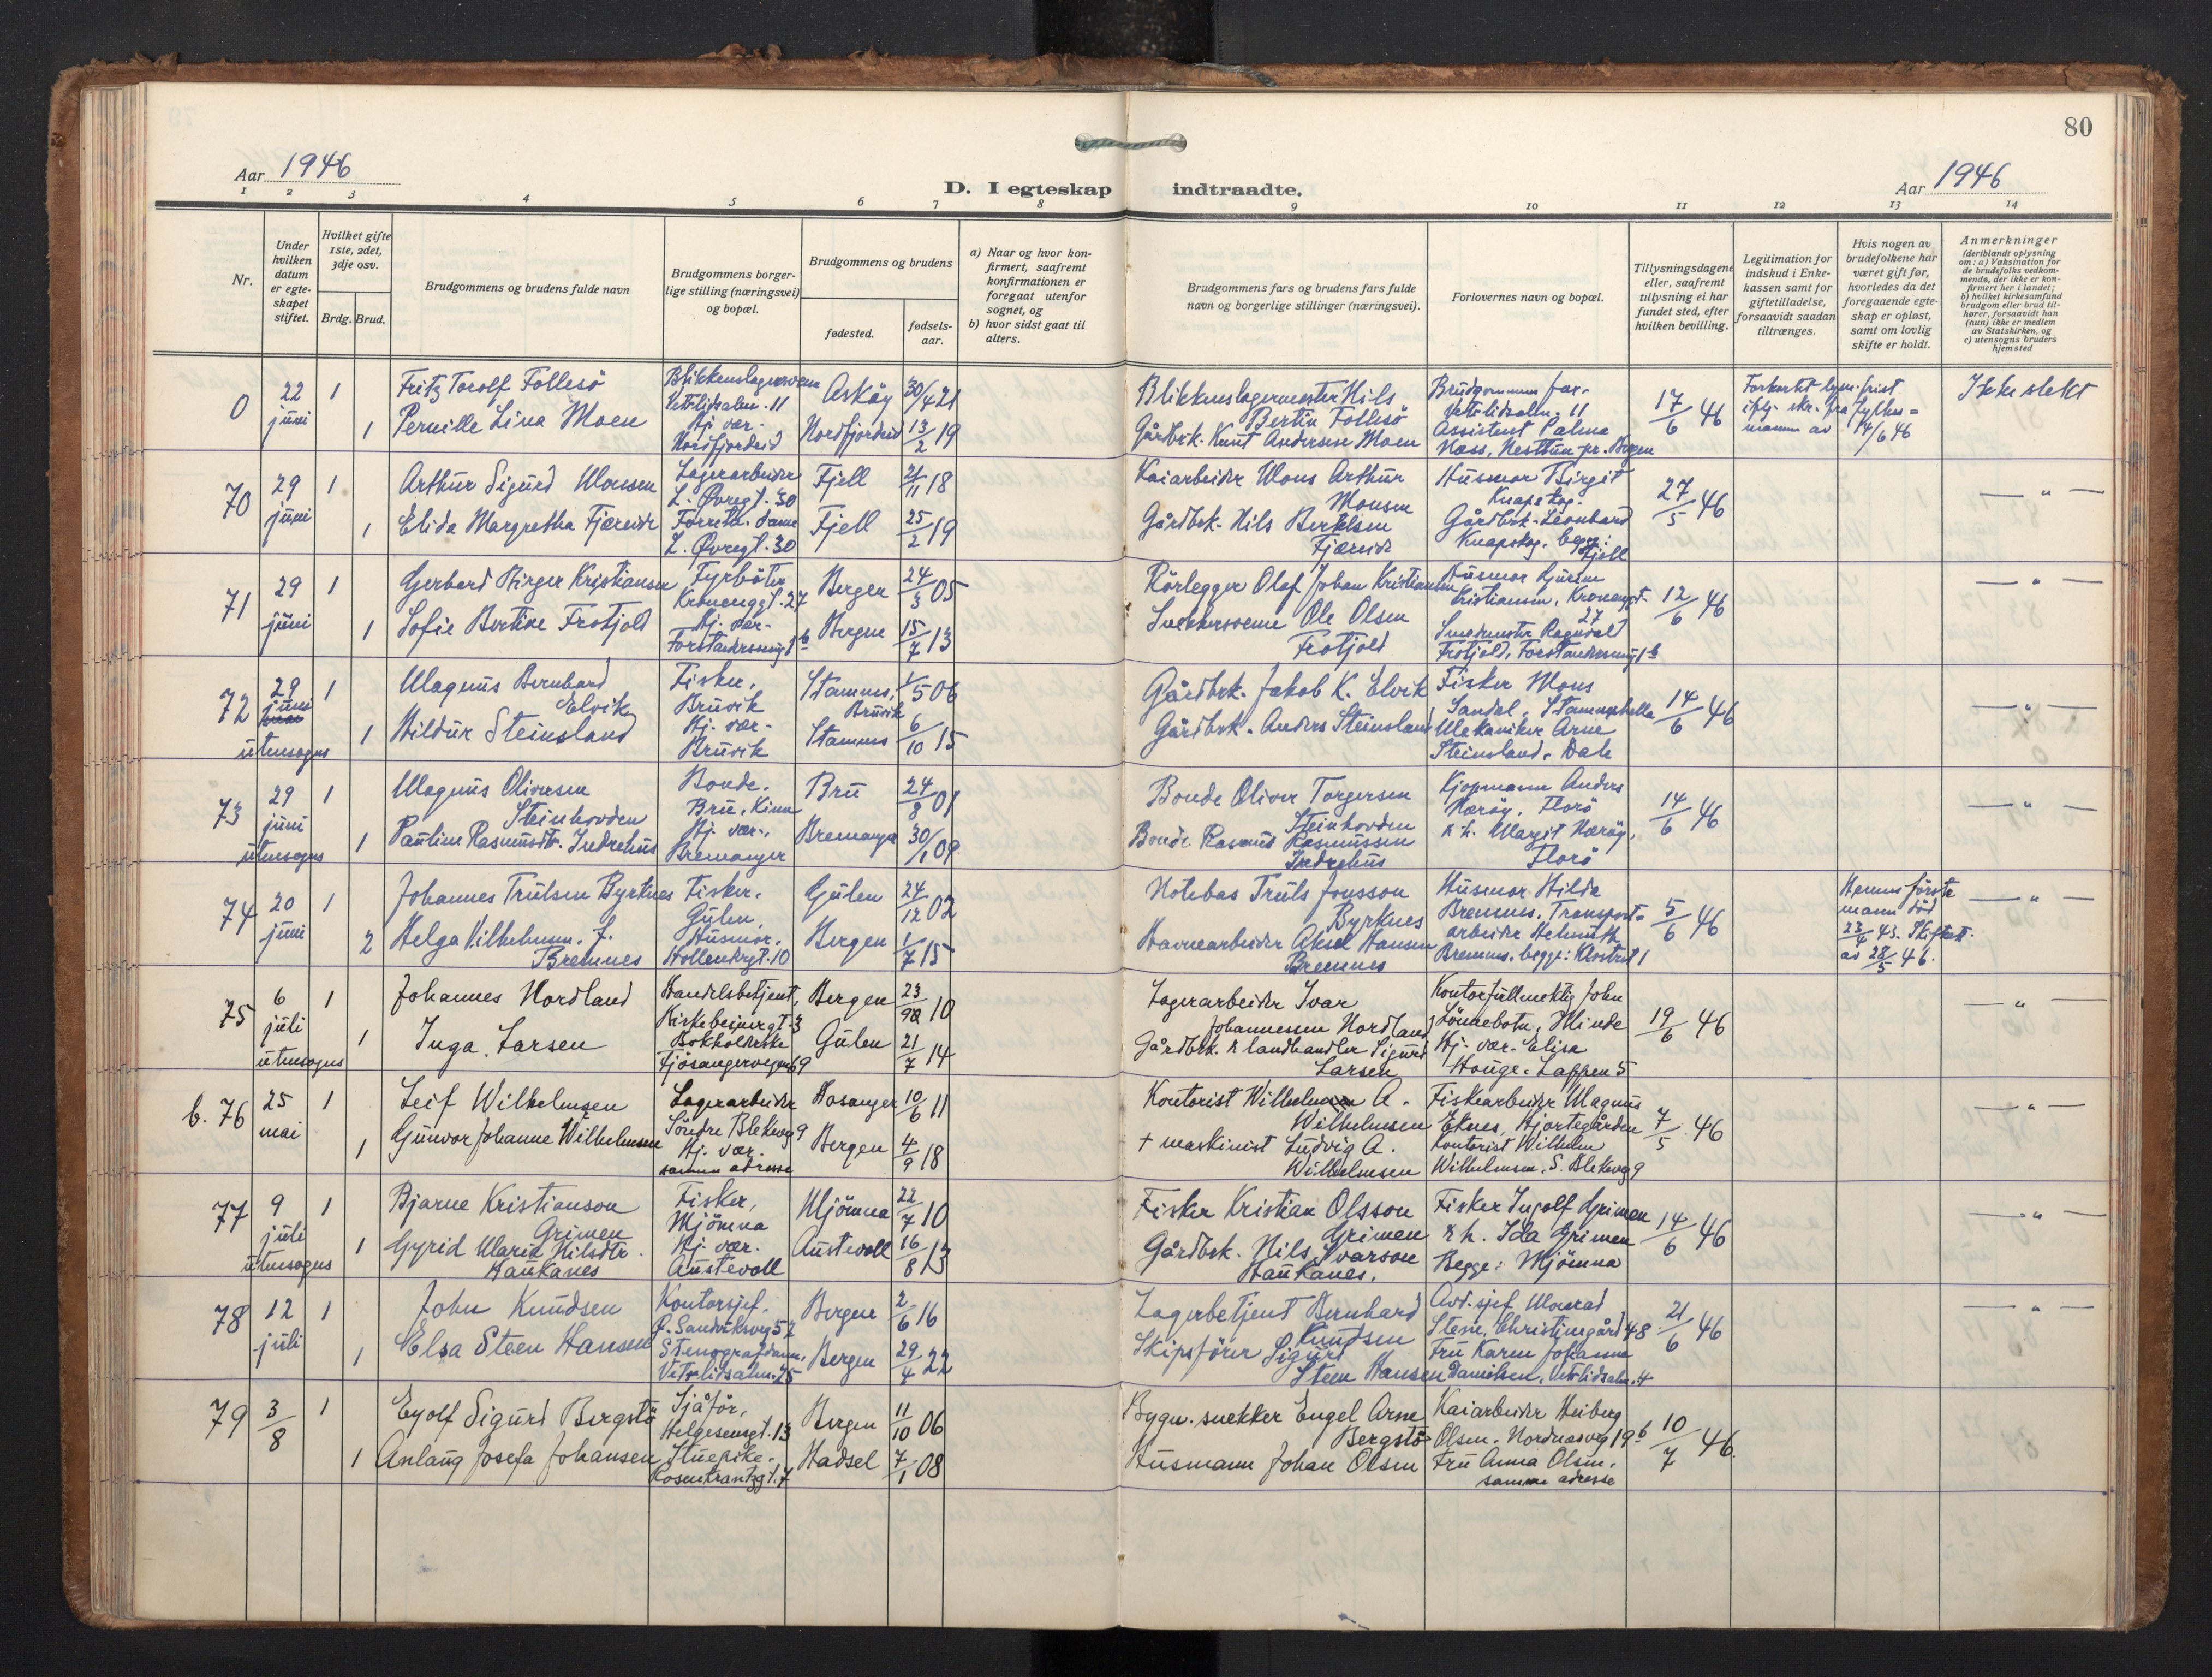 80
Aar 1946
D. I egteskap indtraadte.
Aar 1946
1 2 3 4 5 6 7 8 9 10 11 12 13 14
Nr.
Under hvilken datum er egteskapet stiftet.
Hvilket gifte 1ste, 2det, 3dje osv.
Brdg. Brud.
Brudgommens og brudens fulde navn
Brudgommens borgerlige stilling (næringsvei) og bopæl.
Brudgommens og brudens
fødested.
fødselsaar.
a) Naar og hvor konfirmert, saafremt konfirmationen er foregaat utenfor sognet, og
b) hvor sidst gaat til alters.
Brudgommens fars og brudens fars fulde navn og borgerlige stillinger (næringsvei).
Forlovernes navn og bopæl.
Tillysningsdagene eller, saafremt tillysning ei har fundet sted, efter hvilken bevilling.
Legitimation for indskud i Enkekassen samt for giftetilladelse, forsaavidt saadan tiltrænges.
Hvis nogen av brudefolkene har været gift før, hvorledes da det foregaaende egteskap er opløst, samt om lovlig skifte er holdt.
Anmerkninger
(deriblandt oplysning om: a) Vaksination for de brudefolks vedkommende, der ikke er konfirmert her i landet;
b) hvilket kirkesamfund brudgom eller brud tilhører, forsaavidt han (hun) ikke er medlem av Statskirken, og
c) utensogns bruders hjemsted
0 22 juni 1
Fritz Torolf Follesö
Blikkenslagersvenn
Vetrlidsalm. 11
Asköy 30/4 21
Blikkenslagermester Nils
Bertin Follesö
Brudgommens far.
Vetrlidsalm. 11
17/6 46
Forkortet lysn. frist
ifly. skr. fra fylkes=
mann av 14/6 46
Ikke slekt
1 Pernille Lina Moen
Hj. vær.
Nordfjordeid
Nordfjordeid 13/2 19
Gårdbrk. Knut Andersen Moen
Assistent Palma
Næss, Nesttun pr. Bergen
70 29 juni 1
Arthur Sigurd Monsen
Lagerarbeider
L. Øvregt. 30
Fjell 2/11 18
Kaiarbeider Mons Arthur
Monsen
Husmor Birgit
Knapskog.
27/5 46
— " —
1 Elida Margretha Fjæreide
Forretn. dame
L. Øvregt. 30
Fjell 25/2 19
Gårdbrk. Nils Bertelsen
Fjæreide
Gårdbrk. Leonhard
Knapskog. begge:
Fjell
71 29 juni 1
Gerhard Birger Kristiansen
Fyrböter
Kroneng̣gt. 27
Bergen 24/3 05
Rörlegger Olaf Johan Kristiansen
Husmor Gjurine
Kristiansen, Kronenggt.
27
12/6 46
— " —
1 Sofie Bertine Frotjold
Hj. vær.
Forstandersmug 1 b
Bergen 15/7 13
Snekkersvenn Ole Olsen
Frotjold
Smedmester Ragnvald
Frotjold, Forstandersmug 1 b
72 29 juni utensogns 1
Magnus Bernhard
Elvik
Fisker,
Bruvik
Stamnes, Bruvik 1/5 06
Gårdbrk. Jakob K. Elvik
Fisker Mons
Sandal, Stamneshella
14/6 46
— " —
1 Hildur Steinsland
Hj. vær.
Bruvik
Stamnes 6/10 15
Gårdbrk. Anders Steinsland
Mekaniker Arne
Steinsland. Dale
73 29 juni utensogns 1
Magnus Oliversen
Steinhovden
Bonde.
Bru, Kinn
Bru 24/8 01
Bonde Oliver Torgersen
Steinhovden
Kjøpmann Anders
Nærøy, Florö
14/6 46
— " —
1 Pauline Rasmusdtr. Indrehus
Hj. vær.,
Bremanger
Bremanger 30/1 09
Bonde Rasmus Rasmussen
Indrehus
& h. Margit Nærøy,
Florö
74 20 juni 1
Johannes Trulsen Byrknes
Fisker.
Gulen.
Gulen 24/12 02
Notebas Truls Jonsson
Byrknes
Husmor Hilda
Bremnes, Transport=
5/6 46
Hennes første
mann död
23/4 43. Skifteatt.
av 28/5 46.
— " —
2 Helga Vilhelmsen. f.
Bremnes
Husmor.
Hollendergt. 10
Bergen 1/7 15
Havnearbeider Aksel Hansen
Bremnes
arbeider Helmuth
Bremnes. begge: Klostret 1
75 6 juli utensogns 1
Johannes Nordland
Handelsbetjent,
Birkebeinergt. 3
Bergen 23/ 10
Lagerarbeider Ivar
Johannessen Nordland
Kontorfullmektig John
Lönnebotn, Minde
19/6 46
— " —
1 Inga Larsen
Bokholderske
Fjösangerveyen 69
Gulen 21/7 14
Gårdbrk. & landhandler Sigurd
Larsen
Hj. vær. Elisa
Houge. Lappen 5
b. 76 25 mai 1
Leif Wilhelmsen
Lagerarbeider
Söndre Blekevg 9
Hosanger 10/6 11
Kontorist Wilhelm A.
Wilhelmsen
Fiskearbeider Magnus
Eknes, Hjortegården
7/5 46
— " —
1 Gunvor Johanne Wilhelmsen
Hj. vær.
samme adresse
Bergen 4/9 18
+ maskinist Ludvig A.
Wilhelmsen
Kontorist Wilhelm
Wilhelmsen, S. Blekevg 9
77 9 juli utensogns 1
Bjarne Kristianson
Grimen
Fisker,
Mjömna
Mjömna 22/7 10
Fisker Kristian Olsson
Grimen
Fisker Ingolf Grimen
14/6 46
— " —
1 Gyrid Maria Nilsdtr.
Haukanes
Hj. vær.
Austevoll
Austevoll 16/8 13
Gårdbrk. Nils Ivarson
Haukanes.
& h. Ida Grimen
Begge: Mjömna
78 12 juli 1
John Knudsen
Kontorsjef.
Ö. Sandviksveg 52
Bergen 2/6 16
Lagerbetjent Bernhard
Knudsen
Avd. sjef Monrad
Steen, Christinegård 48.
21/6 46
— " —
1 Elsa Steen Hansen
Stenografdame,
Vetrlidsalm. 25
Bergen 29/4 22
Skipsförer Sigurd
Steen Hansen
Fru Karen Johanne
Danielsen, Vetrlidsalm. 4
79 3/8 1
Eyolf Sigurd Bergstö
Sjåför,
Helgesensgt. 13
Bergen 11/10 06
Bygn. snekker Engel Arne
Bergstö
Kaiarbeider Heiberg
Olsen. Nordnesveg 19 b
10/7 46.
1 Anlaug Josefa Johansen
Stuepike.
Rosenkrantzgt. 7
Hadsel 7/1 08
Husmann Johan Olsen
Fru Anna Olsen.
samme adresse